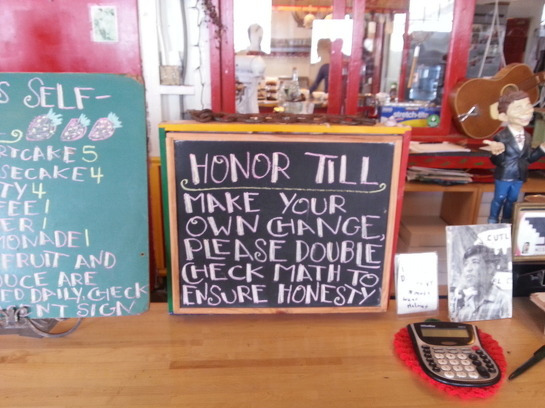 S SELF-
RTCAKE 5
SECAKE 4
TY 4
FEE 1
ER 1
MONADE 1
FRUIT AND
DUCE ARE
ED DAILY, CHECK
NT SIGN
HONOR TILL
MAKE YOUR
OWN CHANGE,
PLEASE DOUBLE
CHECK MATH TO
ENSURE HONESTY.
stretch-tite
CUTL